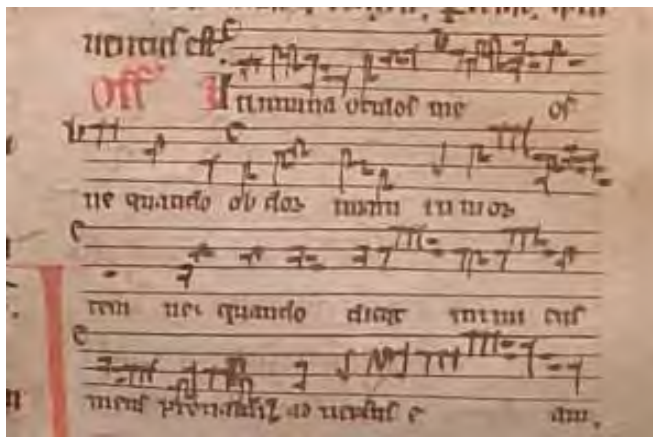 est.
Off. Illumina oculos me os
ne quando ob dor miam in mor
tem ne quando dicat inimi cus
meus preualui ad uersus e um.